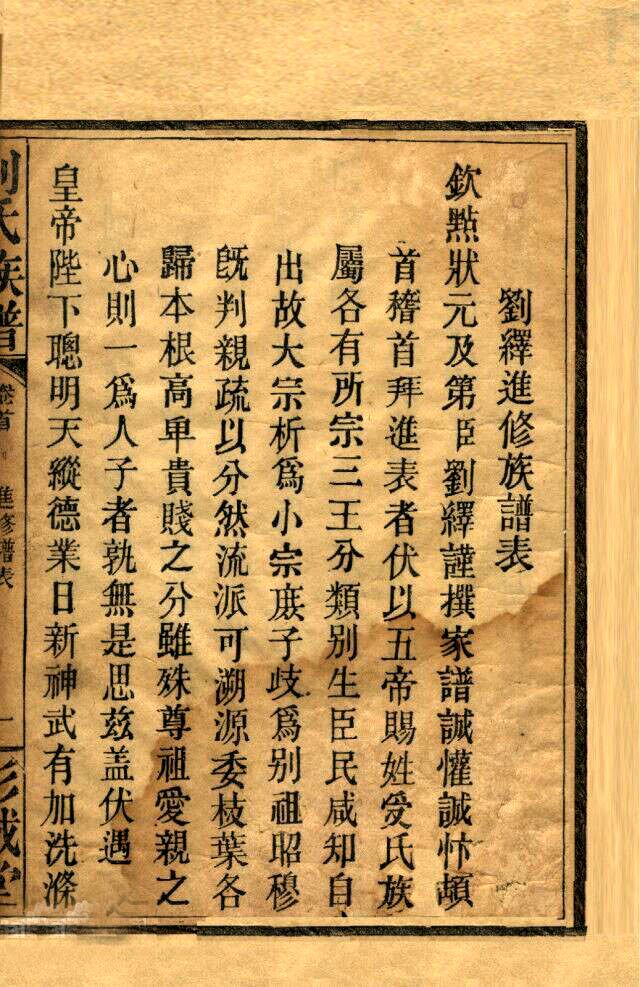 劉繹進修族譜表
欽點狀元及第臣劉繹謹撰家譜誠懽誠忭頓
首稽首拜進表者伏以五帝賜姓受氏族
屬各有所宗三王分類別生臣民咸知自
出故大宗析爲小宗庶子歧爲別祖昭穆
既判親疏以分然流派可溯源委枝葉各
歸本根高卑貴賤之分雖殊尊祖愛親之
心則一爲人子者孰無是思茲盖伏遇
皇帝陛下聰明天縱德業日新神武有加洗滌
劉氏族譜
卷首
進修譜表
一
彭城堂